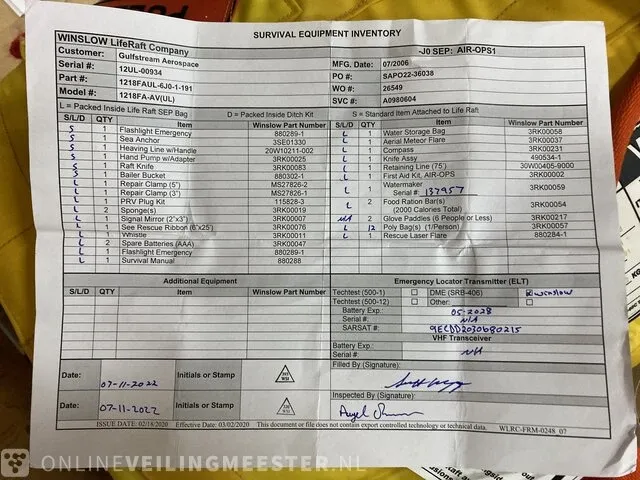 SURVIVAL EQUIPMENT INVENTORY
WINSLOW LifeRaft Company
-J0 SEP: AIR-OPS1
Customer: Gulfstream Aerospace
MFG. Date: 07/2006
Serial #: 12UL-00934
PO #: SAPO22-36038
Part #: 1218FAUL-6J0-1-191
WO #: 26549
Model #: 1218FA-AV(UL)
SVC #: A0980604
L = Packed Inside Life Raft SEP Bag D = Packed Inside Ditch Kit S = Standard Item Attached to Life Raft
S/L/D QTY Item Winslow Part Number
S 1 Flashlight Emergency 880289-1
S 1 Sea Anchor 3SE01330
S 1 Heaving Line w/Handle 20W10211-002
S 1 Hand Pump w/Adapter 3RK00025
S 1 Raft Knife 3RK00083
S 1 Bailer Bucket 880302-1
L 1 Repair Clamp (5") MS27826-2
L 1 Repair Clamp (3") MS27826-1
L 1 PRV Plug Kit 115828-3
L 2 Sponge(s) 3RK00019
L 1 Signal Mirror (2"x3") 3RK00047
L 1 See Rescue Ribbon (6"x25') 3RK00076
L 1 Whistle 3RK00011
L 2 Spare Batteries (AAA) 3RK00047
L 1 Flashlight Emergency 880289-1
L 1 Survival Manual 880288
S/L/D QTY Item Winslow Part Number
L 1 Water Storage Bag 3RK00058
L 1 Aerial Meteor Flare 3RK00037
L 1 Compass 3RK00231
L 1 Knife Assy 490534-1
L 1 Retaining Line (75') 30W00405-9000
L 1 First Aid Kit, AIR-OPS 3RK00002
L 1 Watermaker 3RK00059
Serial #: 137957
L 2 Food Ration Bar(s) 3RK00054
(2000 Calories Total)
N/A 2 Glove Paddles (6 People or Less) 3RK00217
L 12 Poly Bag(s) (1/Person) 3RK00057
L 1 Rescue Laser Flare 880284-1
Additional Equipment
S/L/D QTY Item Winslow Part Number
Emergency Locator Transmitter (ELT)
Techtest (500-1) DME (SRB-406) Winslow
Techtest (500-12) Other:
Battery Exp.: 05-2028
Serial #: N/A
SARSAT #: 9ECDD2030680215
VHF Transceiver
Battery Exp.:
Serial #: N/A
Filled By (Signature):
Date: 07-11-2022 Initials or Stamp
WSI
Inspected By (Signature):
Date: 07-11-2022 Initials or Stamp
WSI
ISSUE DATE: 02/18/2020 Effective Date: 03/02/2020 This document or file does not contain export controlled technology or technical data. WLRC-FRM-0248 07
ONLINEVEILINGMEESTER.NL